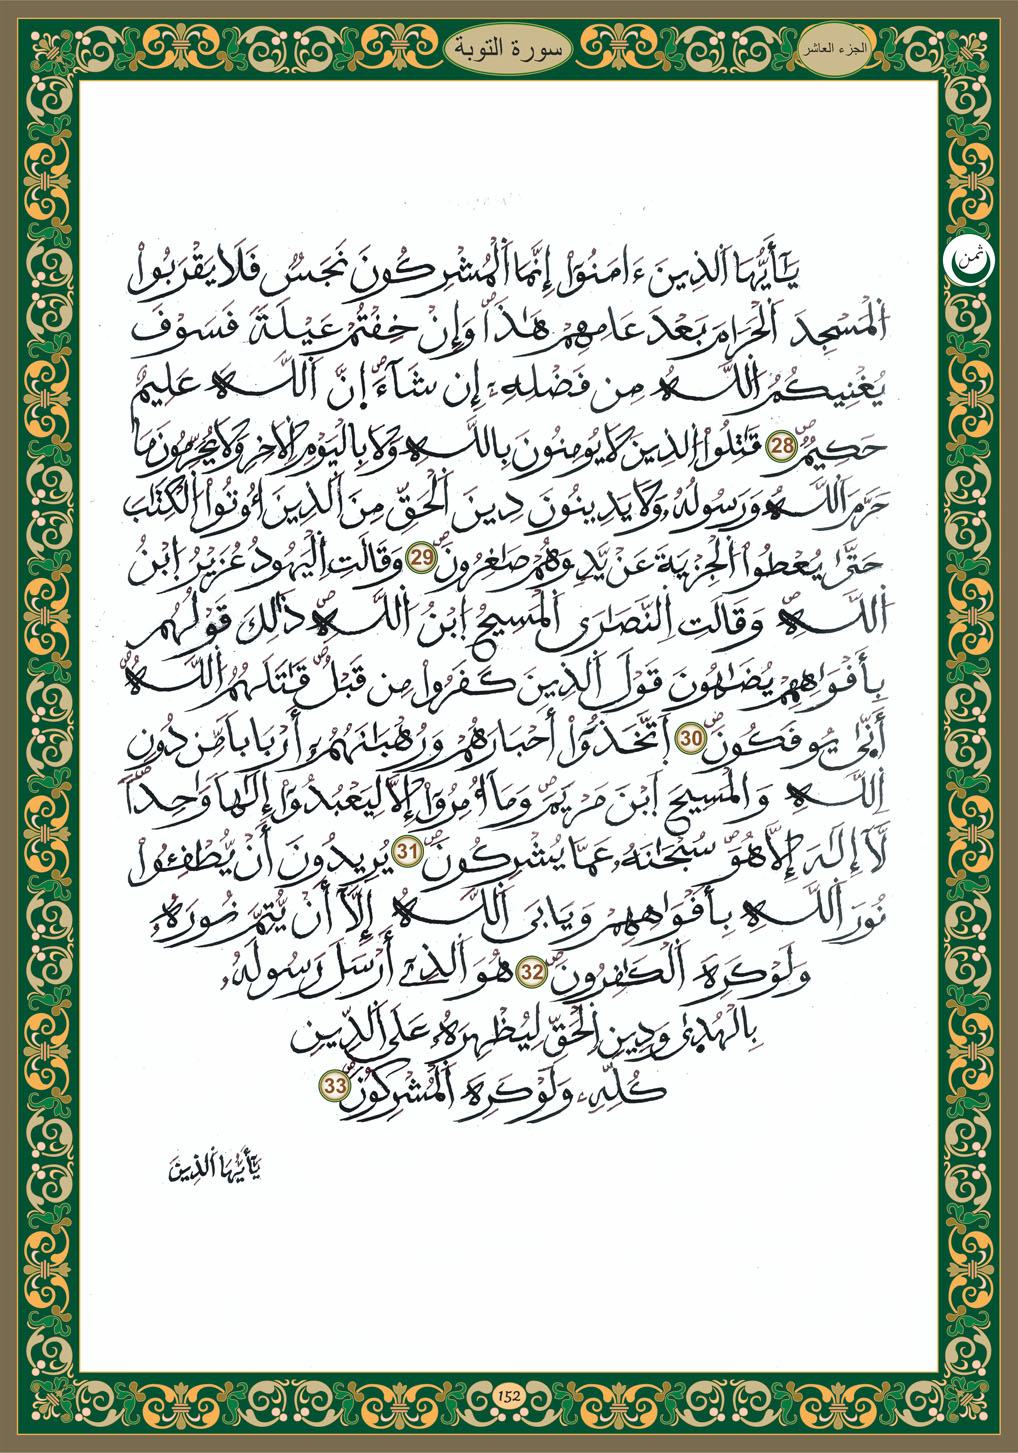 سورة التوبة
الجزء العاشر
ثمن
يَٰٓأَيُّهَا اَ۬لذِينَ ءَامَنُوٓاْ إِنَّمَا اَ۬لْمُشْرِكُونَ نَجَسٞ فَلَا يَقْرَبُواْ
اُ۬لْمَسْجِدَ اَ۬لْحَرَامَ بَعْدَ عَامِهِمْ هَٰذَاۖ وَإِنْ خِفْتُمْ عَيْلَةٗ فَسَوْفَ
يُغْنِيكُمُ اُ۬للَّهُ مِن فَضْلِهِۦٓ إِن شَآءَۖ اِنَّ اَ۬للَّهَ عَلِيمٌ
حَكِيمٞۖ 28 قَٰتِلُواْ اُ۬لذِينَ لَا يُومِنُونَ بِاللَّهِ وَلَا بِالْيَوْمِ اِ۬لَاخِرِ وَلَا يُحَرِّمُونَ مَا
حَرَّمَ اَ۬للَّهُ وَرَسُولُهُۥ وَلَا يَدِينُونَ دِينَ اَ۬لْحَقِّ مِنَ اَ۬لذِينَ أُوتُواْ اُ۬لْكِتَٰبَ
حَتَّىٰ يُعْطُواْ اُ۬لْجِزْيَةَ عَنْ يَّدٖ وَهُمْ صَٰغِرُونَۖ 29 وَقَالَتِ اِ۬لْيَهُودُ عُزَيْرُ اُ۪بْنُ
اُ۬للَّهِۖ وَقَالَتِ اِ۬لنَّصَٰرَى اَ۬لْمَسِيحُ اُ۪بْنُ اُ۬للَّهِۖ ذَٰلِكَ قَوْلُهُم
بِأَفْوَٰهِهِمْ يُضَٰهُونَ قَوْلَ اَ۬لذِينَ كَفَرُواْ مِن قَبْلُۖ قَٰتَلَهُمُ اُ۬للَّهُۖ
أَنّ۪ىٰ يُوفَكُونَۖ 30 اَ۪تَّخَذُوٓاْ أَحْبَارَهُمْ وَرُهْبَٰنَهُمُۥٓ أَرْبَاباٗ مِّن دُونِ
اِ۬للَّهِ وَالْمَسِيحَ اَ۪بْنَ مَرْيَمَۖ وَمَآ أُمِرُوٓاْ إِلَّا لِيَعْبُدُوٓاْ إِلَٰهاٗ وَٰحِداٗۖ
لَّآ إِلَٰهَ إِلَّا هُوَۖ سُبْحَٰنَهُۥ عَمَّا يُشْرِكُونَۖ 31 يُرِيدُونَ أَنْ يُّطْفِـُٔواْ
نُورَ اَ۬للَّهِ بِأَفْوَٰهِهِمْ وَيَابَى اَ۬للَّهُ إِلَّآ أَنْ يُّتِمَّ نُورَهُۥ
وَلَوْ كَرِهَ اَ۬لْكَٰفِرُونَۖ 32 هُوَ اَ۬لذِےٓ أَرْسَلَ رَسُولَهُۥ
بِالْهُد۪ىٰ وَدِينِ اِ۬لْحَقِّ لِيُظْهِرَهُۥ عَلَى اَ۬لدِّينِ
كُلِّهِۦ وَلَوْ كَرِهَ اَ۬لْمُشْرِكُونَۖ 33
يَٰٓأَيُّهَا اَ۬لذِينَ
152